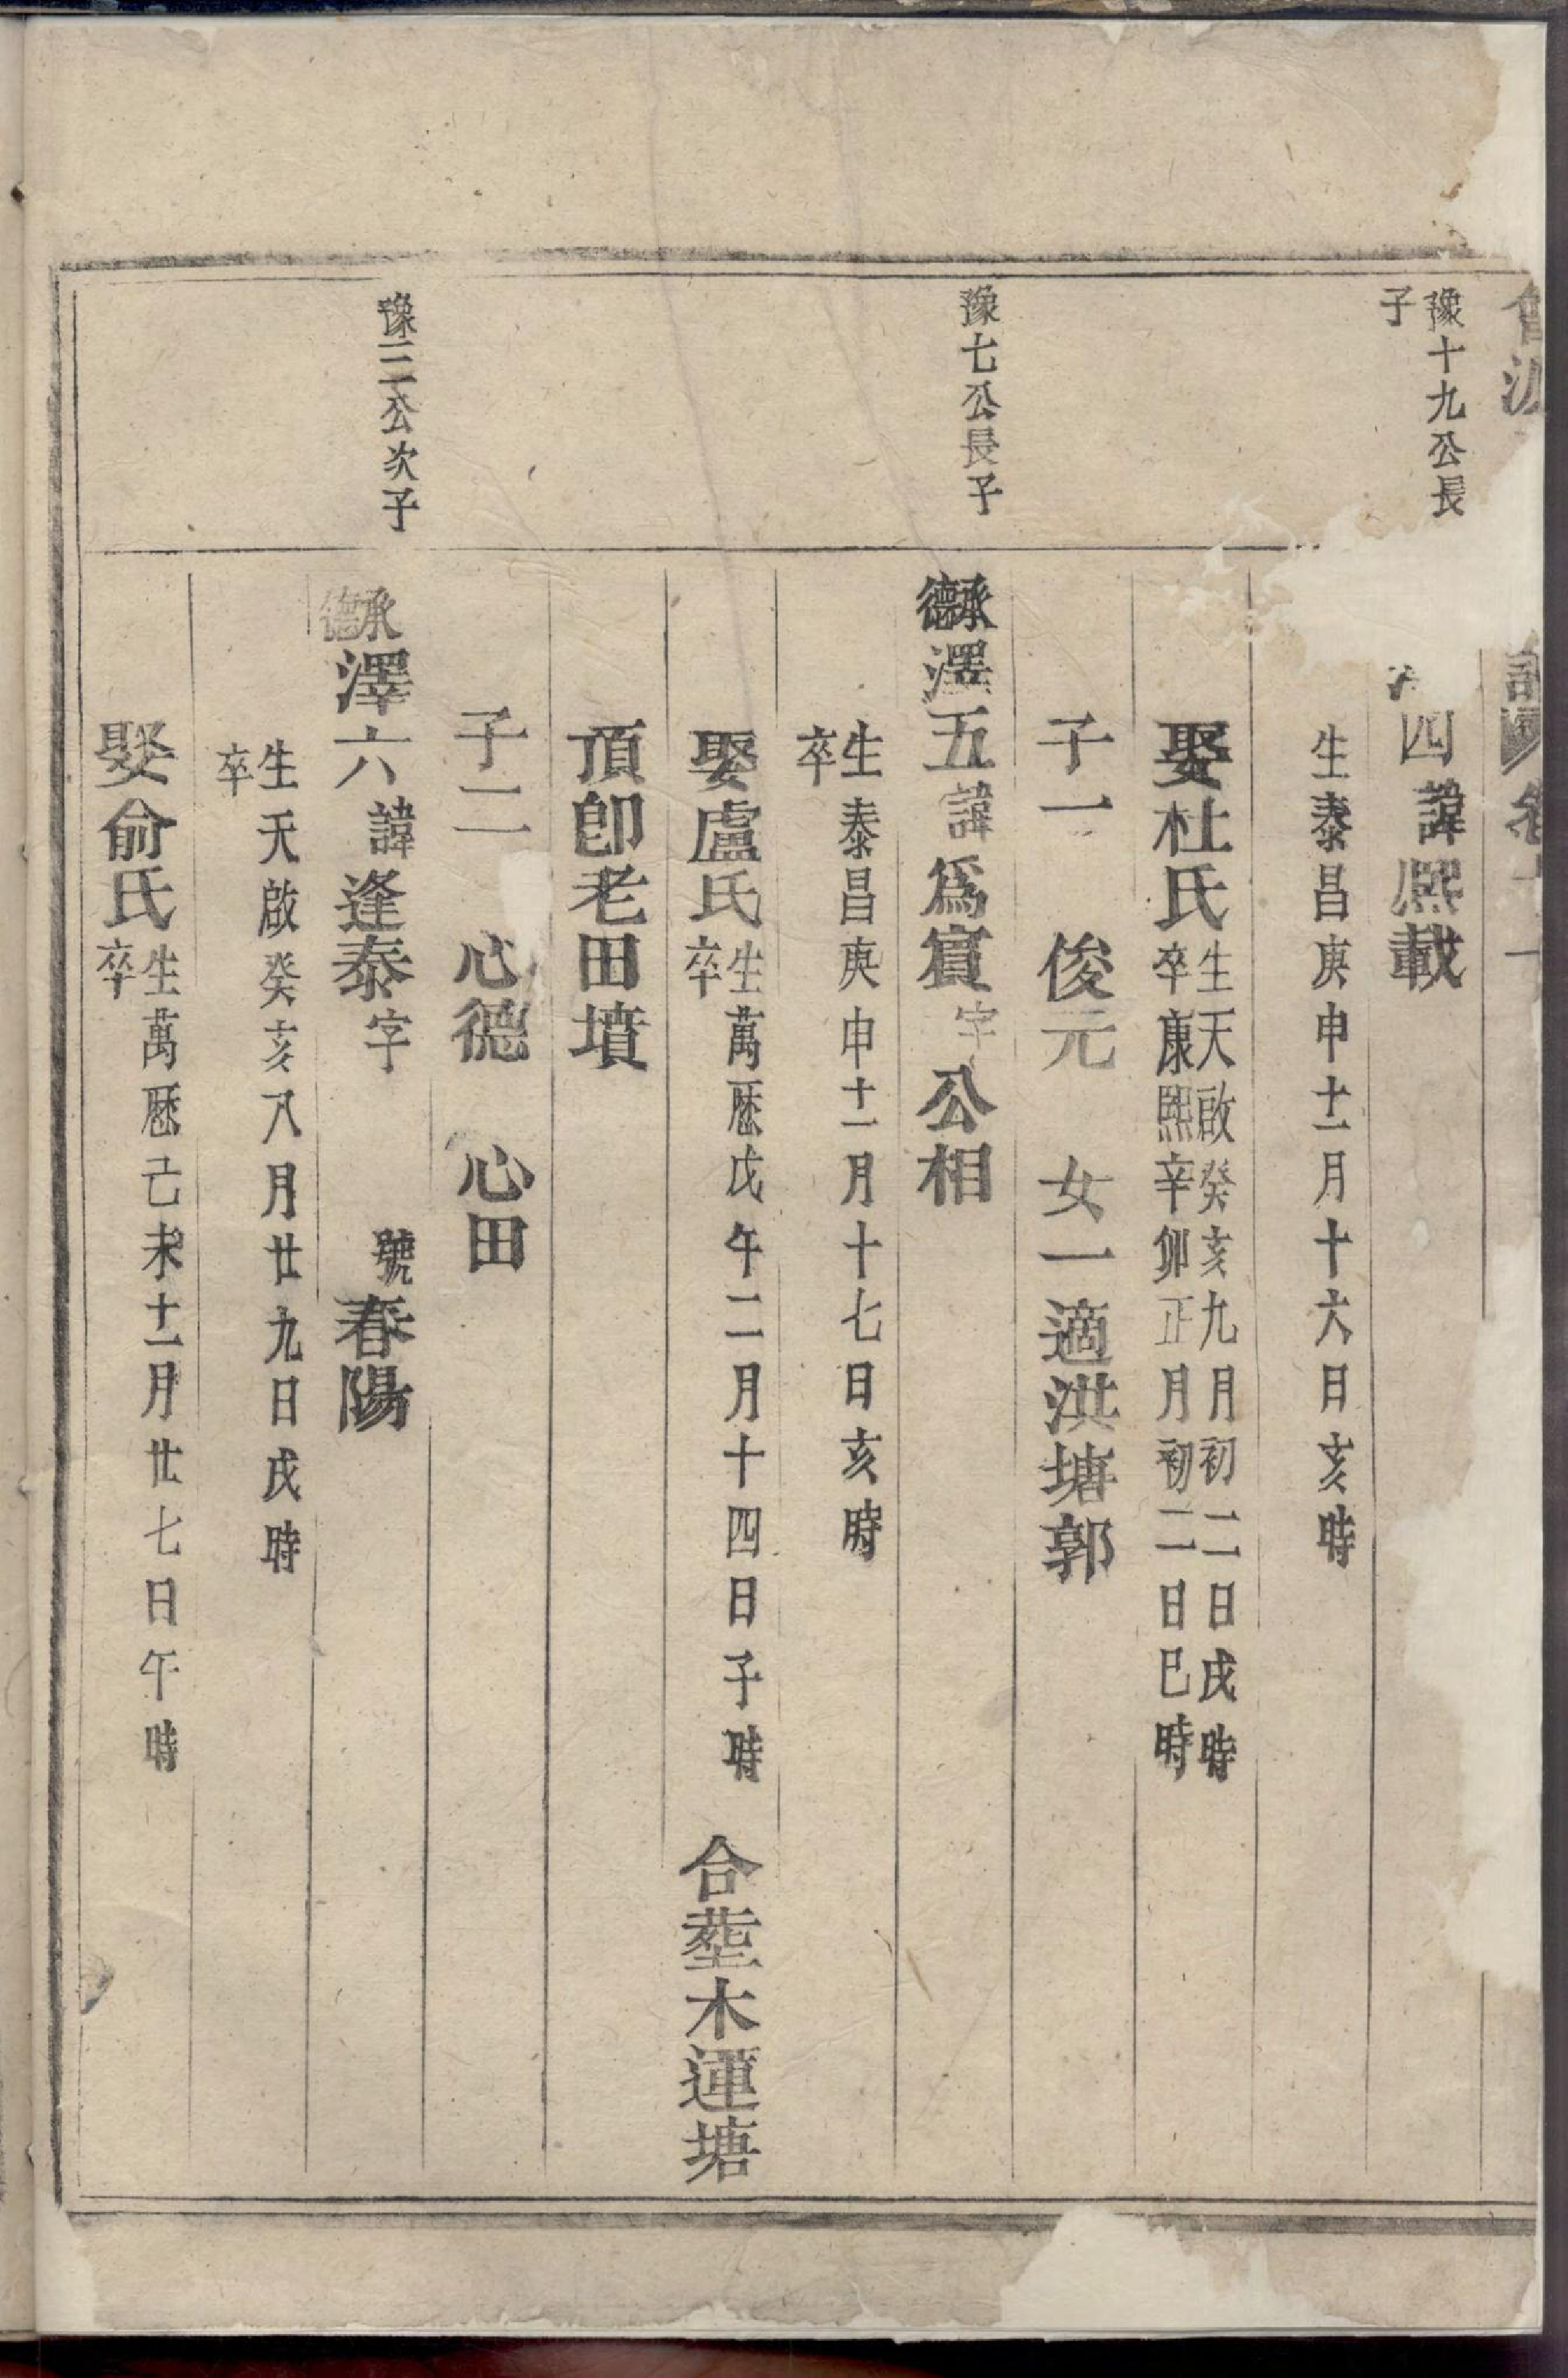 豫十九公長
子
四諱熙載
生泰昌庚申十二月十六日亥時
娶杜氏
生天啟癸亥九月初二日戌時
卒康熙辛卯正月初二日巳時
子一 俊元 女一適洪塘郭
豫七公長子
承德澤五諱爲賓字公相
生泰昌庚申十二月十七日亥時
卒
娶盧氏
生萬厯戊午二月十四日子時
卒
合塟木蓮塘
頂卽老田墳
子二 心德 心田
豫三公次子
承德澤六諱逢泰字 號春陽
生天啟癸亥八月廿九日戌時
卒
娶俞氏
生萬厯己未十二月廿七日午時
卒